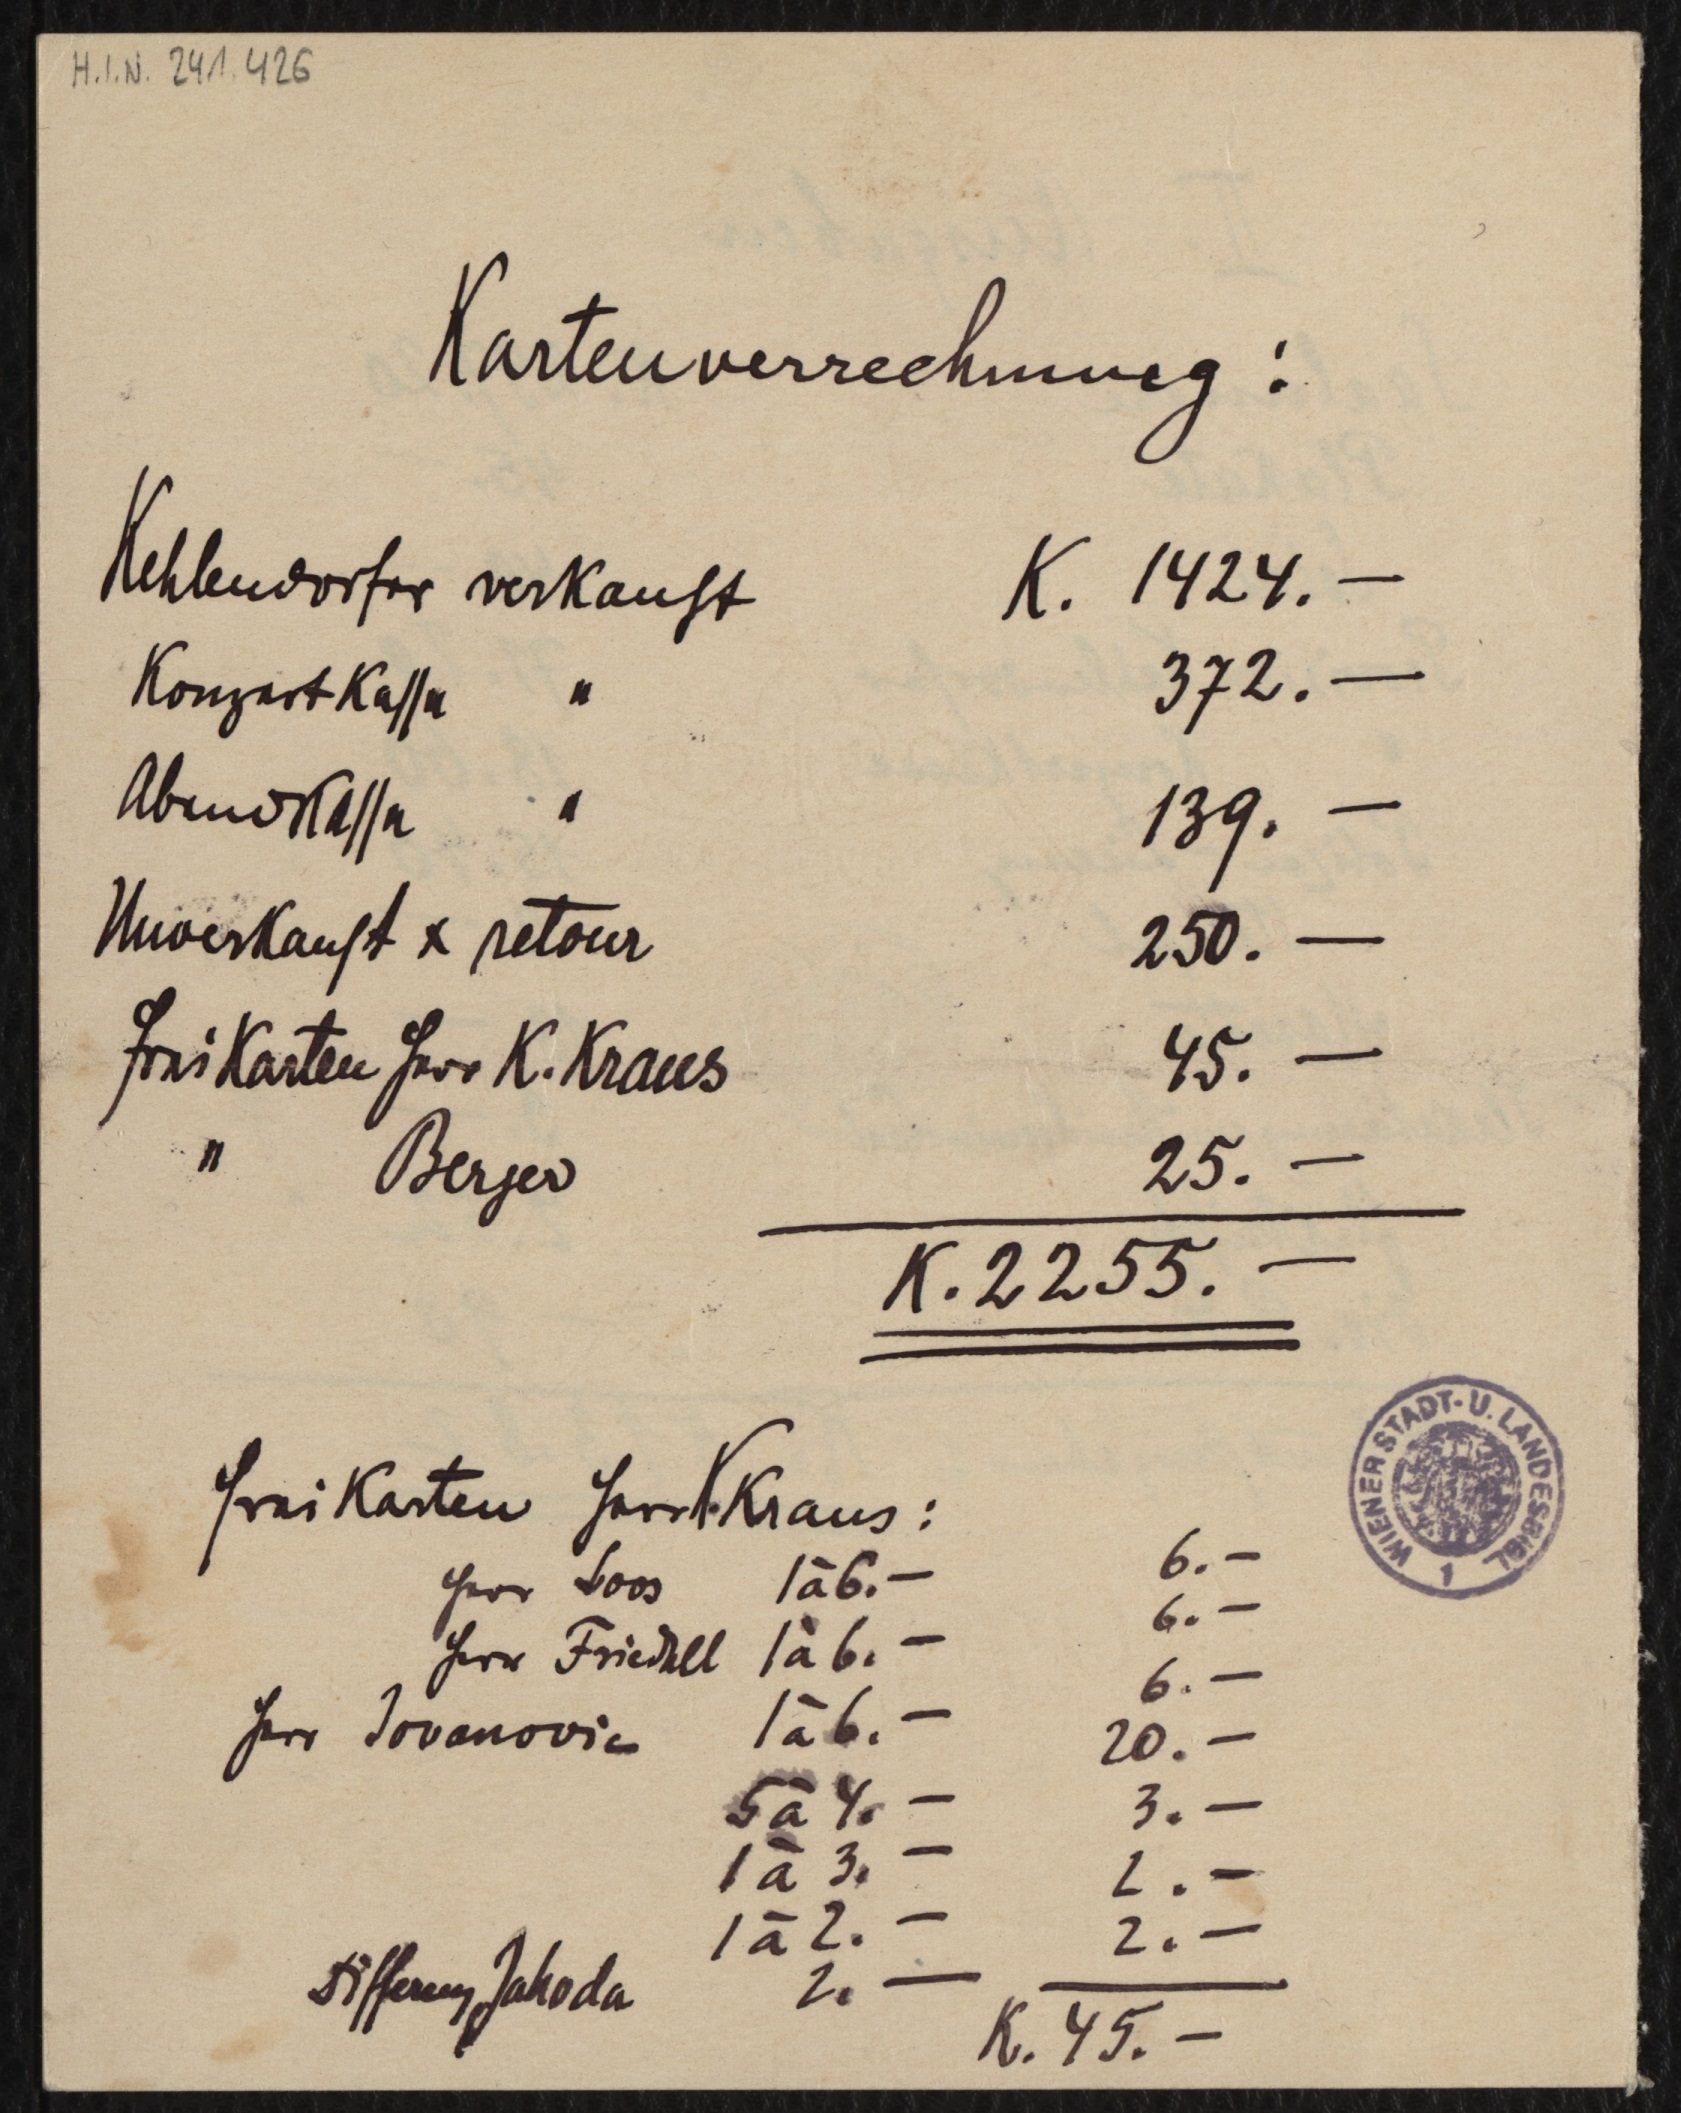 H.I.N. 241.426
Kartenverrechnung:
Kehlendorfer verkauft K. 1424.—
Konzertkassa " 372.—
Abendkassa " 139.—
Unverkauft & retour 250.—
Freikarten Herr K. Kraus 45.—
" Berger 25.—
K. 2255.—
Freikarten Herr K. Kraus:
Herr Loos 1 à 6.— 6.—
Herr Friedell 1 à 6.— 6.—
Herr Jovanovic 1 à 6.— 6.—
5 à 4.— 20.—
1 à 3.— 3.—
1 à 2.— 2.—
Differenz Jahoda 2.— 2.—
K. 45.—
WIENER STADT- U. LANDESBIBL.
1